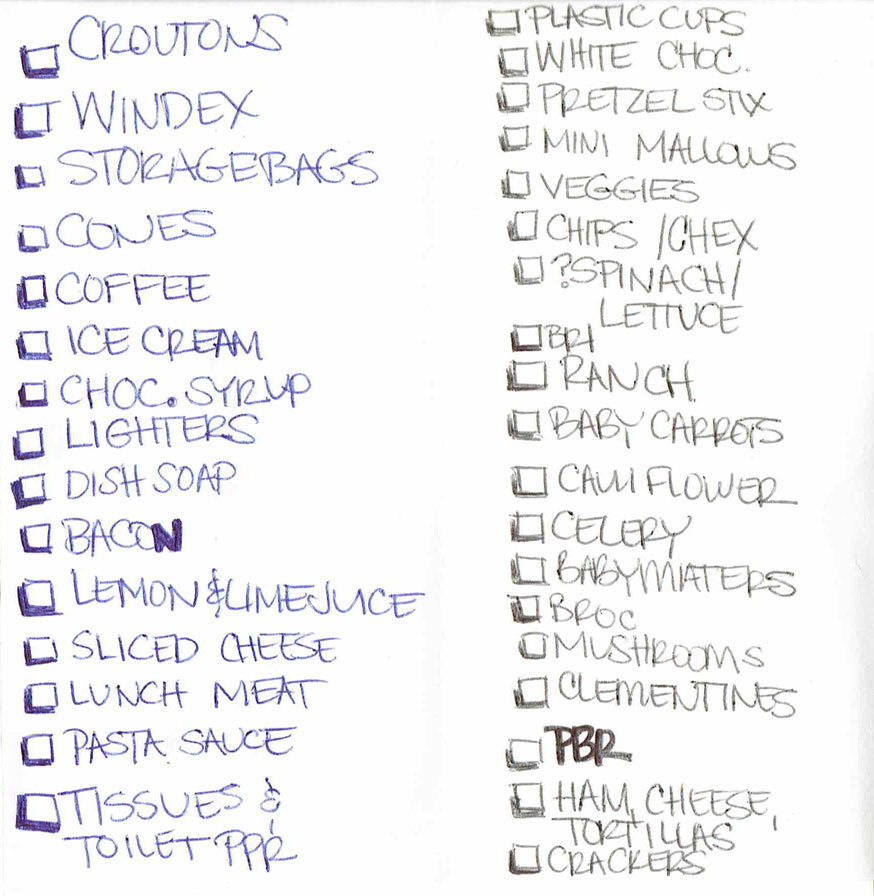 CROUTONS
WINDEX
STORAGE BAGS
CONES
COFFEE
ICE CREAM
CHOC. SYRUP
LIGHTERS
DISH SOAP
BACON
LEMON & LIME JUICE
SLICED CHEESE
LUNCH MEAT
PASTA SAUCE
TISSUES &
TOILET PPR
PLASTIC CUPS
WHITE CHOC.
PRETZEL STIX
MINI MALLOWS
VEGGIES
CHIPS /CHEX
?SPINACH/
LETTUCE
BRI
RANCH
BABY CARROTS
CAULIFLOWER
CELERY
BABYMATERS
BROC
MUSHROOMS
CLEMENTINES
PBR
HAM, CHEESE,
TORTILLAS
CRACKERS